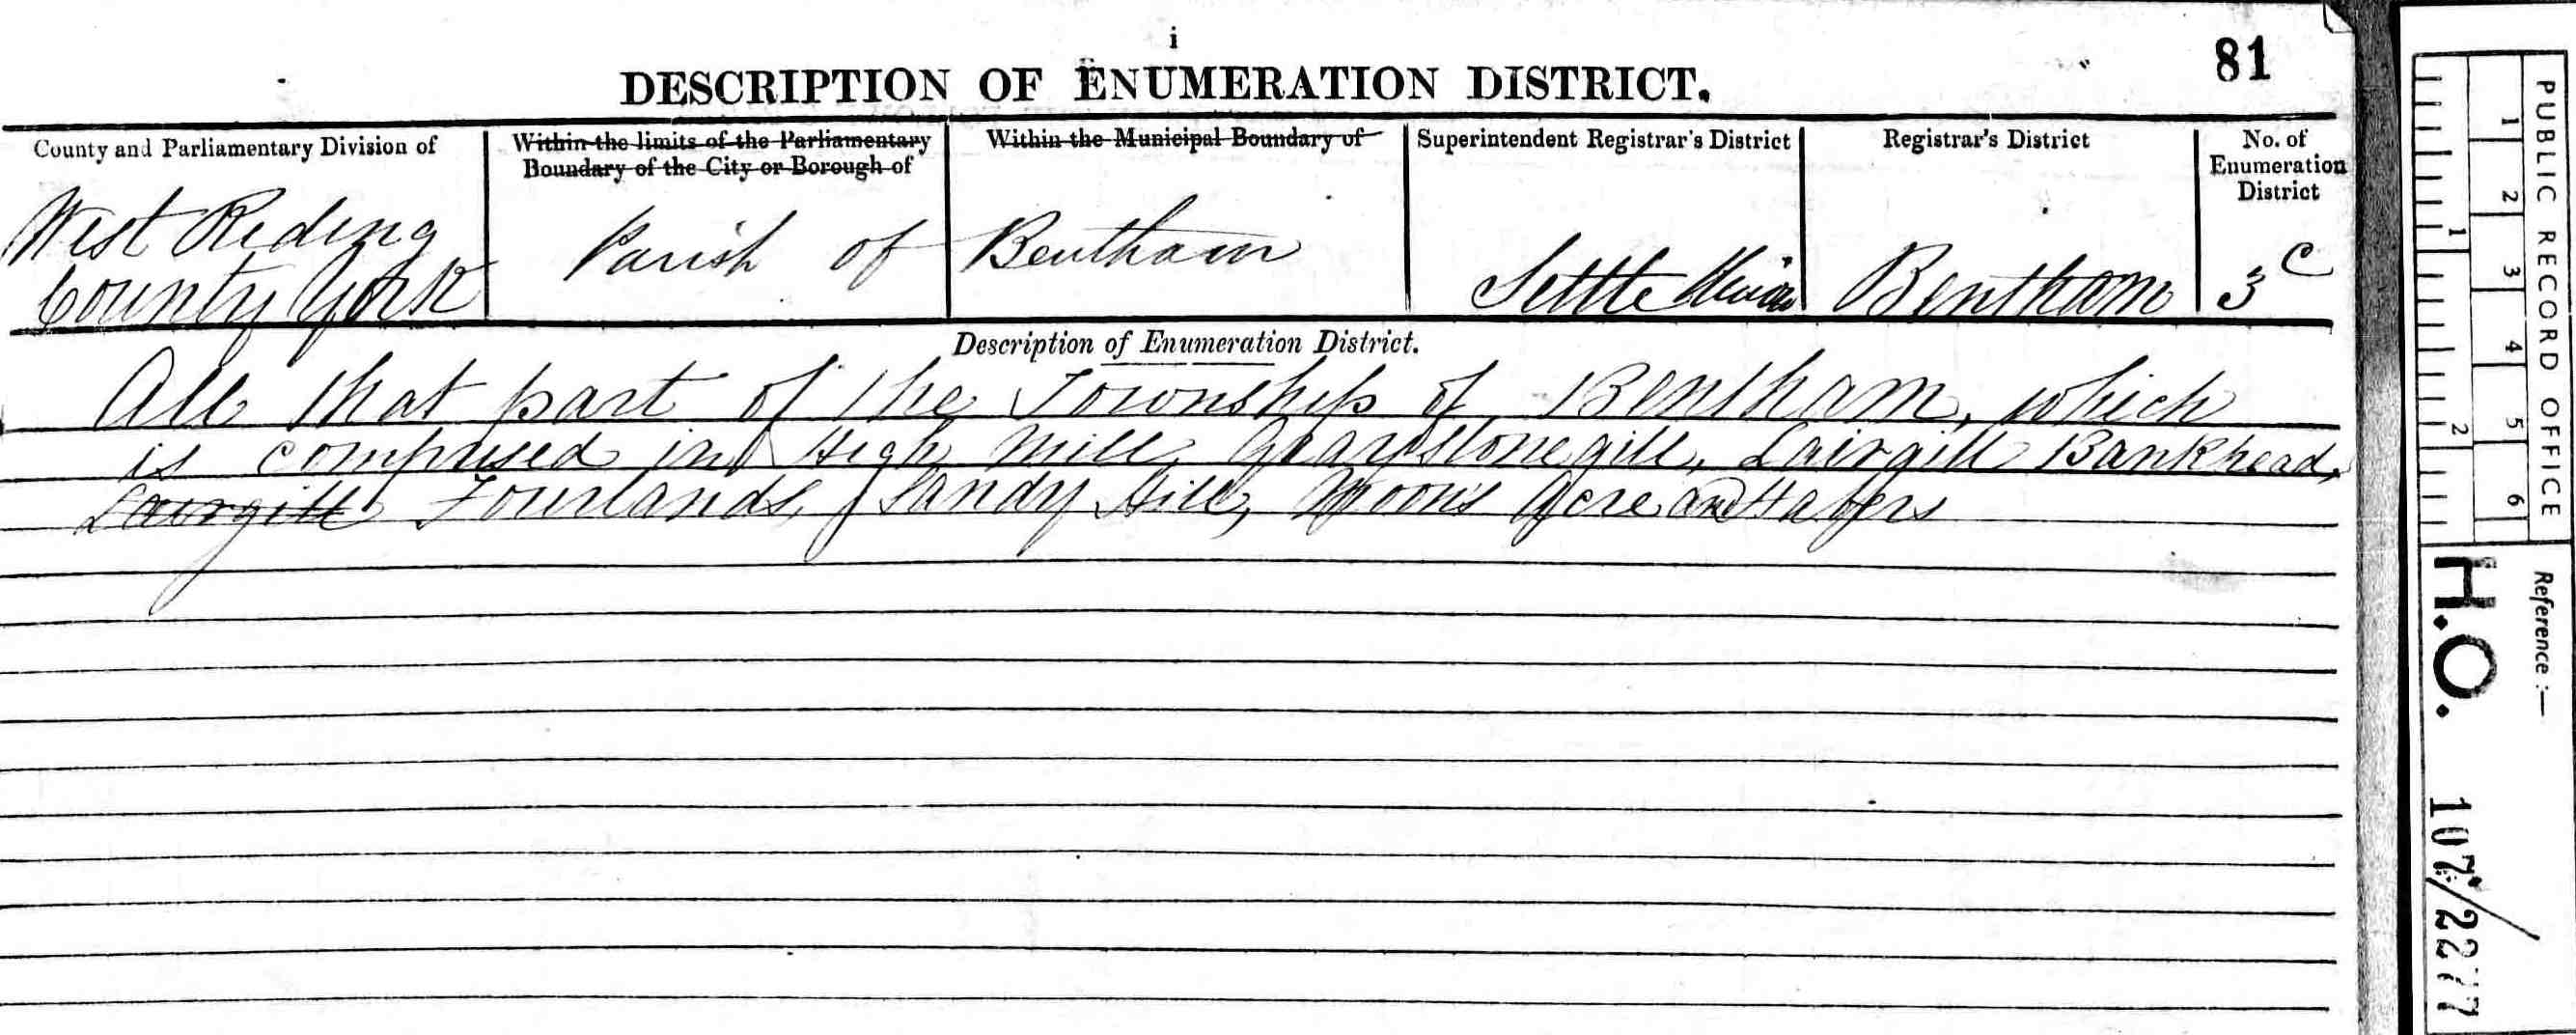 i
81
DESCRIPTION OF ENUMERATION DISTRICT.
County and Parliamentary Division of
Within the limits of the Parliamentary
Boundary of the City or Borough of
Within the Municipal Boundary of
Superintendent Registrar's District
Registrar's District
No. of
Enumeration
District
West Reding
County York
Parish of
Bentham
Settle Union
Bentham
3 c
Description of Enumeration District.
All that part of the Township of Bentham, which
is comprised in High Mill, Graystonegill, Lairgill Bankhead,
Lairgill Fourlands, Sandy Hill, Moon's Acre and Hafers
PUBLIC RECORD OFFICE
1 2 3 4 5 6
1 2
Reference :—
H.O. 107/2277